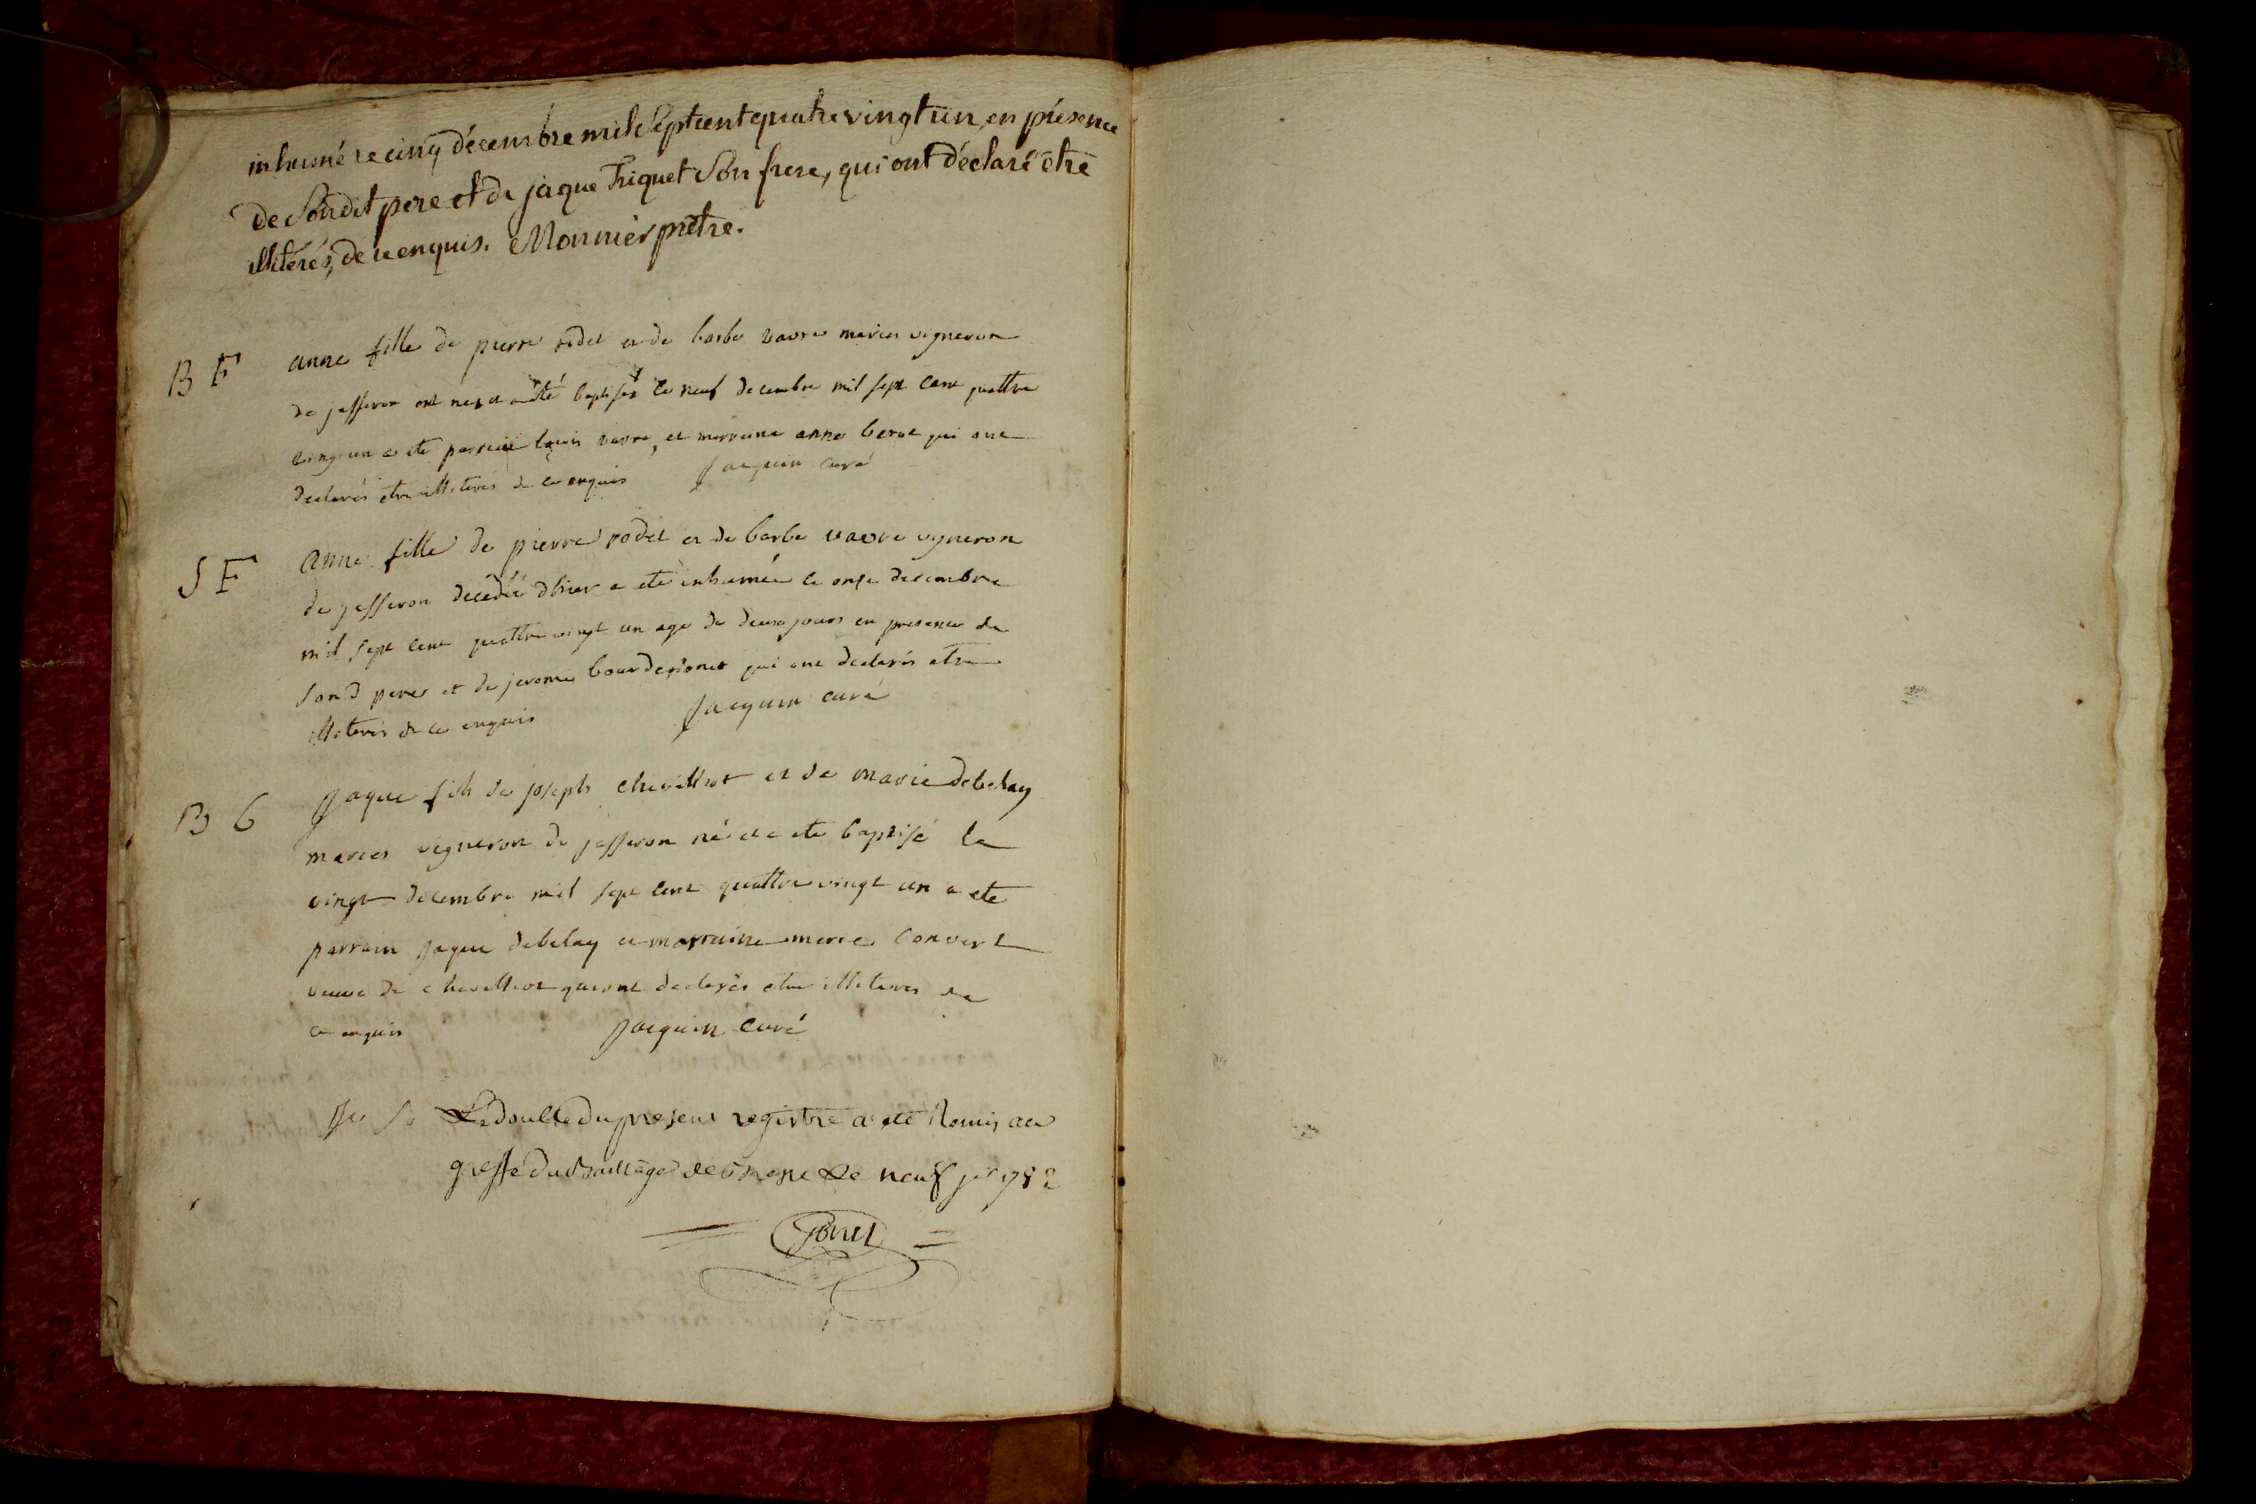 inhumé le cinq décembre mil Sept cent quatre vingt un, en présence
de Son dit pere et de jâque Triquet Son frere, qui ont déclaré être
illiterés, de ce enquis. Monnier prêtre.
B F
anne fille de pierre rodet et de barbe vavre maries vigneron
de jasseron est née et a été baptisée le neuf decembre mil sept cent quattre
vingt un a ete parrain louis vavre, et marraine anne beroe qui ont
declarés etre illiterés de ce enquis Jacquin curé
S F
anne fille de pierre rodet et de barbe vavre vigneron
de jasseron décédée d'hier a eté inhumée le onze decembre
mil sept cent quattre vingt un age de deux jours en presence de
son d pere et de jerome bourderionet qui ont declarés etre
illiterés de ce enquis Jacquin curé
B G
Jaque fils de joseph chevillot et de marie debelay
maries vigneron de jasseron né et a ete baptisé le
vingt decembre mil sept cent quattre vingt un a ete
parrain jaque debelay et marraine marie convert
veuve de chevillot qui ont declarés etre illiterés de
ce enquis Jacquin curé
Le double du present registre a été Remis au
greffe du Bailliage de Bresse Le neuf jer 1782